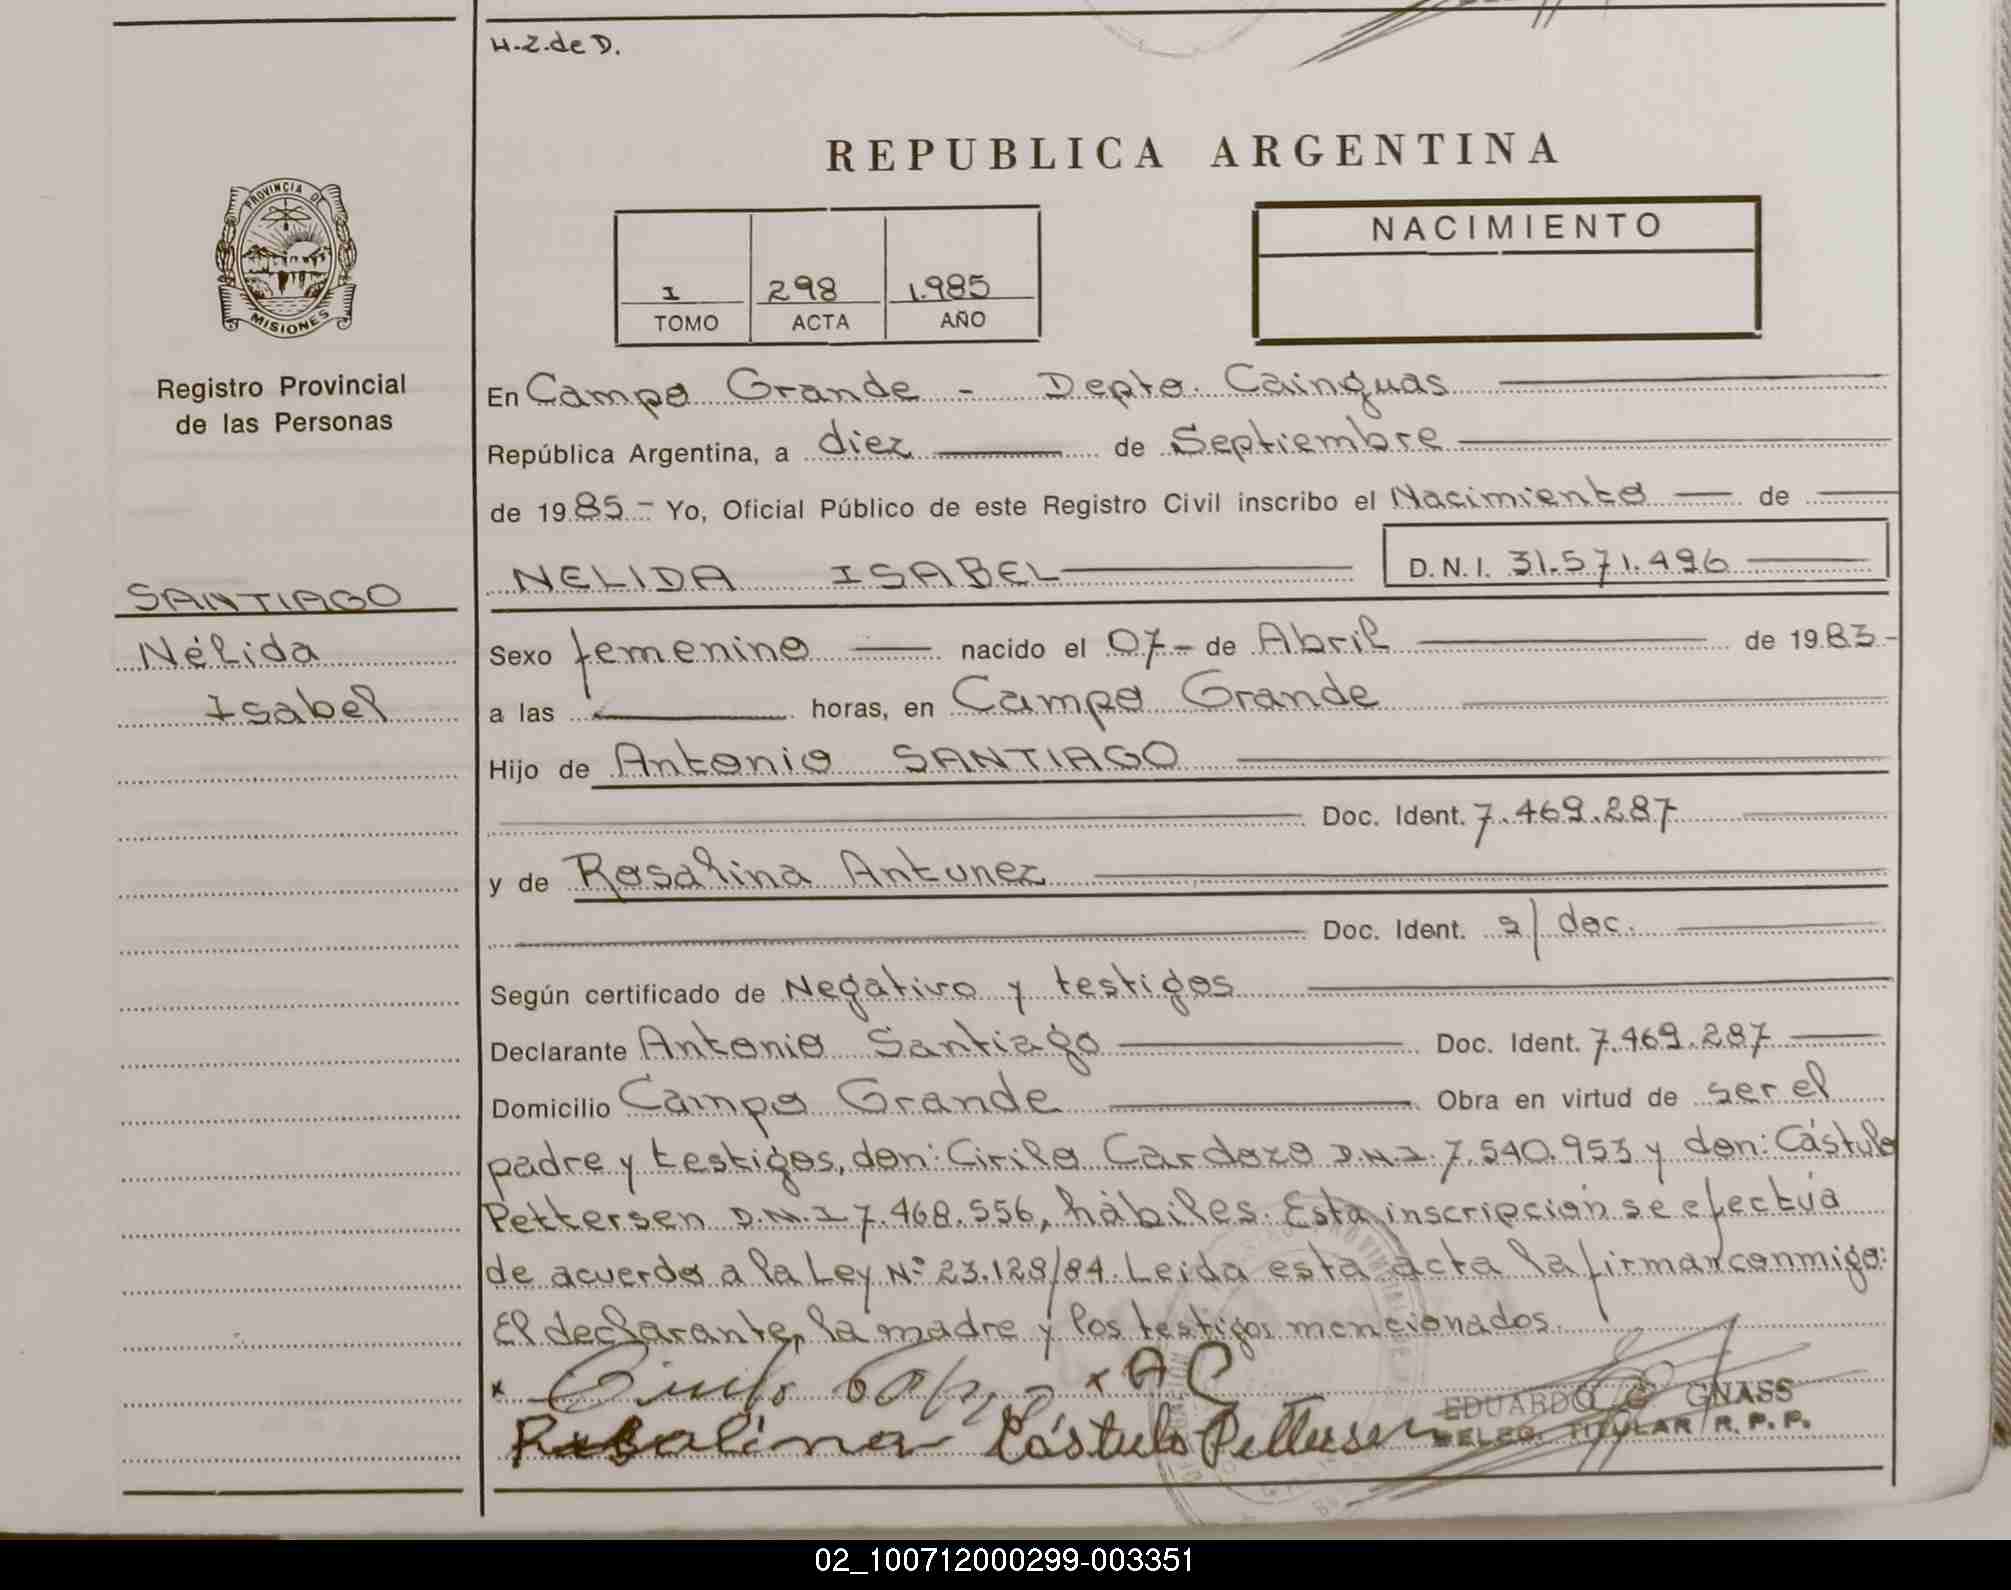 H-Z.de D.
REPUBLICA ARGENTINA
PROVINCIA DE
MISIONES
Registro Provincial
de las Personas
I 298 1.985
TOMO ACTA AÑO
NACIMIENTO
En Campo Grande - Depto. Cainguas
República Argentina, a diez de Septiembre
de 1985 - Yo, Oficial Público de este Registro Civil inscribo el Nacimiento de
NELIDA ISABEL D.N.I. 31.571.496
SANTIAGO
Nélida
Isabel
Sexo femenino nacido el 07- de Abril de 1983-
a las horas, en Campo Grande
Hijo de Antonio SANTIAGO
Doc. Ident. 7.469.287
y de Rosalina Antunez
Doc. Ident. s/ doc.
Según certificado de Negativo y testigos
Declarante Antonio Santiago Doc. Ident. 7.469.287
Domicilio Campo Grande Obra en virtud de ser el
padre y testigos, don: Cirilo Cardozo D.N.I. 7.540.953 y don: Cástulo
Pettersen D.N.I 7.468.556, hábiles. Esta inscripción se efectúa
de acuerdo a la Ley Nº 23.128/84. Leida esta acta la firman conmigo:
El declarante, la madre y los testigos mencionados.
x x A C
Rosalina Cástulo Pettersen
EDUARDO GNASS
DELEG. TITULAR R. P. P.
02_100712000299-003351